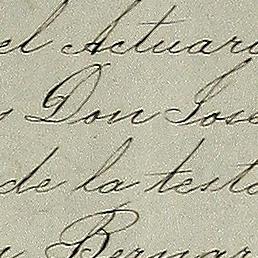 el Actuari
Don José
de la testa
Bernar